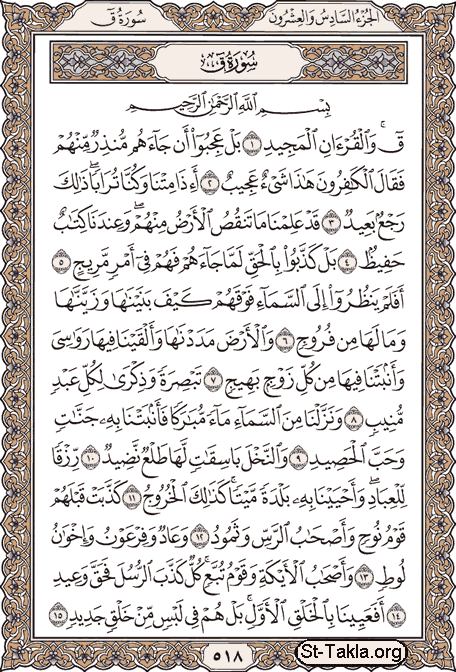 الجزء السادس والعشرون
سورة ق
سُورَةُ قٓ
بِسْمِ ٱللَّهِ ٱلرَّحْمَٰنِ ٱلرَّحِيمِ
قٓۚ وَٱلْقُرْءَانِ ٱلْمَجِيدِ ١ بَلْ عَجِبُوٓا۟ أَن جَآءَهُم مُّنذِرٌ مِّنْهُمْ
فَقَالَ ٱلْكَٰفِرُونَ هَٰذَا شَىْءٌ عَجِيبٌ ٢ أَءِذَا مِتْنَا وَكُنَّا تُرَابًاۖ ذَٰلِكَ
رَجْعٌۢ بَعِيدٌ ٣ قَدْ عَلِمْنَا مَا تَنقُصُ ٱلْأَرْضُ مِنْهُمْۖ وَعِندَنَا كِتَٰبٌ
حَفِيظٌۢ ٤ بَلْ كَذَّبُوا۟ بِٱلْحَقِّ لَمَّا جَآءَهُمْ فَهُمْ فِىٓ أَمْرٍ مَّرِيجٍ ٥
أَفَلَمْ يَنظُرُوٓا۟ إِلَى ٱلسَّمَآءِ فَوْقَهُمْ كَيْفَ بَنَيْنَٰهَا وَزَيَّنَّٰهَا
وَمَا لَهَا مِن فُرُوجٍ ٦ وَٱلْأَرْضَ مَدَدْنَٰهَا وَأَلْقَيْنَا فِيهَا رَوَٰسِىَ
وَأَنۢبَتْنَا فِيهَا مِن كُلِّ زَوْجٍۭ بَهِيجٍ ٧ تَبْصِرَةً وَذِكْرَىٰ لِكُلِّ عَبْدٍ
مُّنِيبٍ ٨ وَنَزَّلْنَا مِنَ ٱلسَّمَآءِ مَآءً مُّبَٰرَكًا فَأَنۢبَتْنَا بِهِۦ جَنَّٰتٍ
وَحَبَّ ٱلْحَصِيدِ ٩ وَٱلنَّخْلَ بَاسِقَٰتٍ لَّهَا طَلْعٌ نَّضِيدٌ ١٠ رِّزْقًا
لِّلْعِبَادِۖ وَأَحْيَيْنَا بِهِۦ بَلْدَةً مَّيْتًاۚ كَذَٰلِكَ ٱلْخُرُوجُ ١١ كَذَّبَتْ قَبْلَهُمْ
قَوْمُ نُوحٍ وَأَصْحَٰبُ ٱلرَّسِّ وَثَمُودُ ١٢ وَعَادٌ وَفِرْعَوْنُ وَإِخْوَٰنُ
لُوطٍ ١٣ وَأَصْحَٰبُ ٱلْأَيْكَةِ وَقَوْمُ تُبَّعٍۚ كُلٌّ كَذَّبَ ٱلرُّسُلَ فَحَقَّ وَعِيدِ
١٤ أَفَعَيِينَا بِٱلْخَلْقِ ٱلْأَوَّلِۚ بَلْ هُمْ فِى لَبْسٍ مِّنْ خَلْقٍ جَدِيدٍ ١٥
٥١٨
St-Takla.org